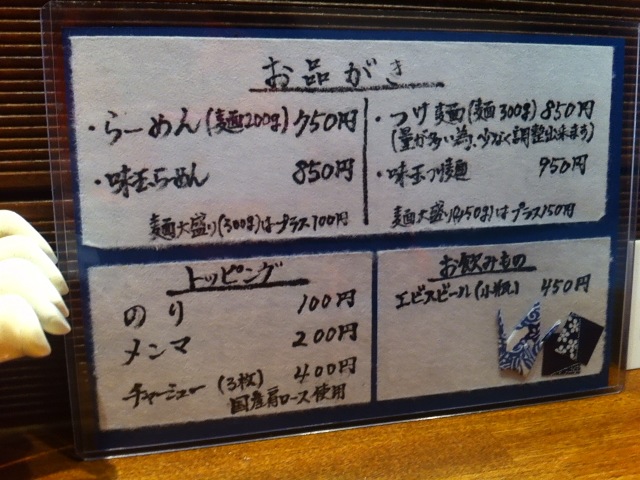 お品がき
・らーめん(麺200g) 750円
・味玉らーめん 850円
麺大盛り(300g)はプラス100円
・つけ麺(麺300g) 850円
(量が多い為、少なく調整出来ます)
・味玉つけ麺 950円
麺大盛り(450g)はプラス150円
トッピング
のり 100円
メンマ 200円
チャーシュー (3枚) 400円
国産肩ロース使用
お飲みもの
エビスビール(小瓶) 450円